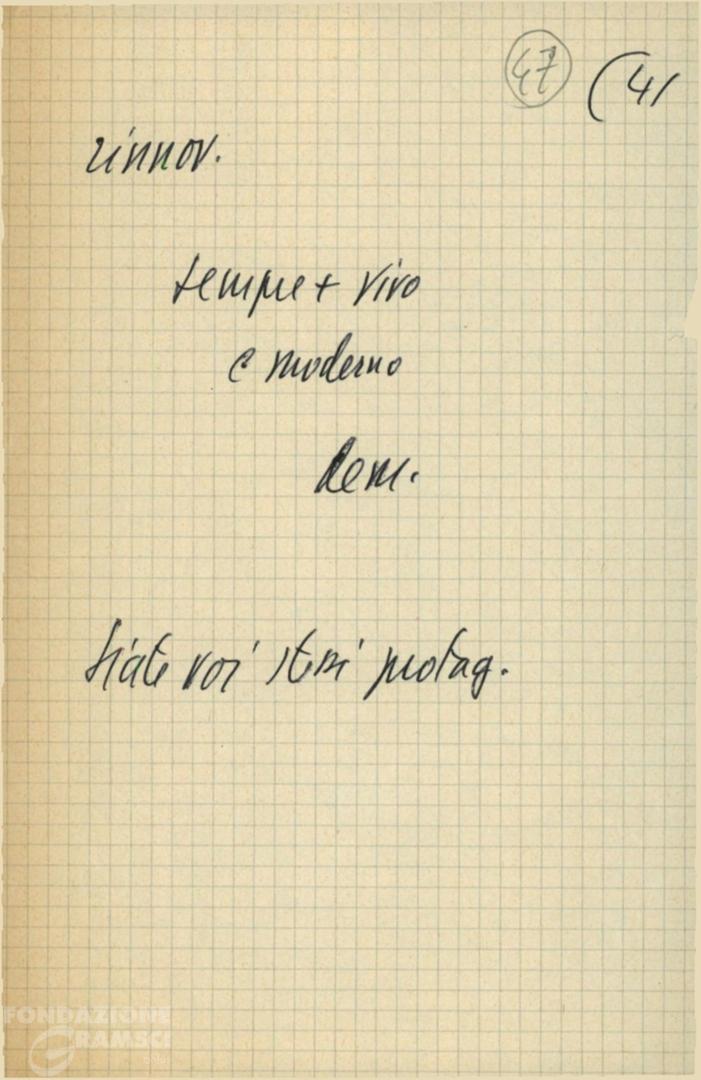 47 (41
rinnov.
sempre + vivo
e moderno
dem.
siate voi stessi protag.
FONDAZIONE
GRAMSCI